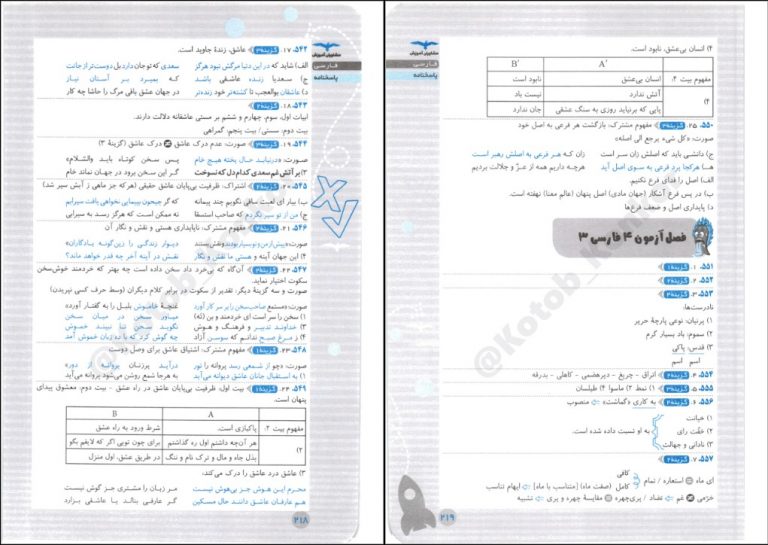 مشاوران آموزش
فارسی
پاسخنامه
۵۴۲. ۱۷. گزینه «۳» عاشق، زندهٔ جاوید است.
الف) شاید که در این دنیا مرگش نبود هرگز
سعدی که تو جان دارد بل دوست‌تر از جانت
ج) سعدیا زنده عاشقی باشد
که بمیرد بر آستان نیاز
د) عاشقان بوالعجب تا کشته‌تر خود زنده‌تر
در جهان عشق باقی مرگ را حاشا چه کار
۵۴۳. ۱۸. گزینه
ابیات اول، سوم، چهارم و ششم بر مستی عاشقانه دلالت دارند.
بیت دوم: سستی/ بیت پنجم: گمراهی
۵۴۴. ۱۹. گزینه «۳» صورت: عدم درک عشق ≠ درک عشق (گزینهٔ ۳)
صورت: «درنیابد حال پخته هیچ خام
پس سخن کوتاه باید والسّلام»
۳) بر آتش غم سعدی کدام دل که نسوخت
گر این سخن برود در جهان نماند خام
۵۴۵. ۲۰. گزینه اشتراک: ظرفیت بی‌پایان عاشق حقیقی (هرکه جز ماهی ز آبش سیر شد)
ب) بیار ای لعبت ساقی نگویم چند پیمانه
که گر جیحون بپیمایی نخواهی یافت سیرابم
ج) من از تو سیر نگردم که صاحب استسقا
نه ممکن است که هرگز رسد به سیرابی
۵۴۶. ۲۱. گزینه مفهوم مشترک: ناپایداری هستی و نقش و نگار آن
صورت: «پیش از من و تو بسیار بودند و نقش بستند
دیوار زندگی را زین‌گونه یادگاران»
۱) این جهان آینه و هستی ما نقش و نگار
نقش در آینه آخر چه قدر خواهد ماند؟
۵۴۷. ۲۲. گزینه آن‌گاه که بی‌خرد داد سخن داده است به بهتر که خردمند خوش‌سخن
سکوت اختیار نماید.
صورت و سه گزینهٔ دیگر: تقدیر از سکوت در برابر کلام دیگران (وسط حرف کسی نپریدن)
صورت: «مستمع صاحب سخن را بر سر کار آورد
غنچهٔ خاموش بلبل را به گفتار آورد»
۱) سخن را سر است ای خردمند و بن (ته)
میاور سخن در میان سخن
۳) خداوند تدبیر و فرهنگ و هوش
نگوید سخن تا نبیند خموش
۴) ز مرغ صبح ندانم که سوسن آزاد
چه گوش کرد که با ده زبان خموش آمد
۵۴۸. ۲۳. گزینه «۱» مفهوم مشترک: اشتیاق عاشق برای وصل دوست
صورت: «چو از شمعی رسد پروانه را نور
درآید پرزنان پروانه از دور»
۱) به استقبال جانان عاشق دیوانه می‌آید
به هرجا شمع روشن می‌شود پروانه می‌آید
۵۴۹. ۲۴. گزینه «۱» بیت اول، ظرفیت بی‌پایان عاشق در راه عشق - بیت دوم، معشوق پیدای
پنهان است.
A
B
مفهوم بیت ۲:
پاکبازی است.
شرط ورود به راه عشق
۲)
هر آن‌چه داشتم اول ره گذاشتم
برای چون تویی اگر که لایقم بگو
بذل جاه و مال و ترک نام و ننگ
در طریق عشق، اول منزل
۳) عاشق درد عاشق را درک می‌کند:
محرم این هوش جز بی‌هوش نیست
مر زبان را مشتری جز گوش نیست
هم عارفان عاشق دانند حال مسکین
گر عارفی بنالد یا عاشقی بزارد
۲۱۸
مشاوران آموزش
فارسی
پاسخنامه
۴) انسان بی‌عشق، نابود است.
A′
B′
مفهوم بیت ۴:
انسان بی‌عشق
نابود است
۴)
آتش ندارد
نیست باد
پایی که برنیاید روزی به سنگ عشقی
جان ندارد
۵۵۰. ۲۵. گزینه مفهوم مشترک: بازگشت هر فرعی به اصل خود
صورت: «کل شیء یرجع الی اصله»
ج) دانشی باید که اصلش زان سر است
زان که هر فرعی به اصلش رهبر است
ها) هرکجا برد فرعی به سوی اصل آید
هرچه داریم همه از عزّ و جلالت بردیم
الف) اصل را فدای فرع نکنیم.
ب) در پس فرع آشکار (جهان مادی) اصل پنهان (عالم معنا) نهفته است.
د) پایداری اصل و ضعف فرع‌ها
فصل آزمون ۴ فارسی ۳
۵۵۱. ۱. گزینه «۱»
۵۵۲. ۲. گزینه
۵۵۳. ۳. گزینه
نادرست‌ها:
۱) پرنیان: نوعی پارچهٔ حریر
۲) سموم: باد بسیار گرم
۳) قدس: پاکی
اسم اسم
۵۵۴. ۴. گزینه اتراق - چریغ - دیرهضمی - کاهلی - بدرقه
۵۵۵. ۵. گزینه ۱) نمط ۲) ماسوا ۴) طیلسان
۵۵۶. ۶. گزینه به کاری «گماشت» ⇐ منصوب
۱) خیانت
۲) خفّت رای
۳) نادانی و جهالت
به او نسبت داده شده است.
۵۵۷. ۷. گزینه
ای ماه = استعاره / تمام
کافی
کامل (صفت ماه) [متناسب با ماه] ⇐ ایهام تناسب
خرّمی ≠ غم ⇐ تضاد / پری‌چهره = مقایسهٔ چهره و پری ⇐ تشبیه
۲۱۹
@Kotob_Konkor